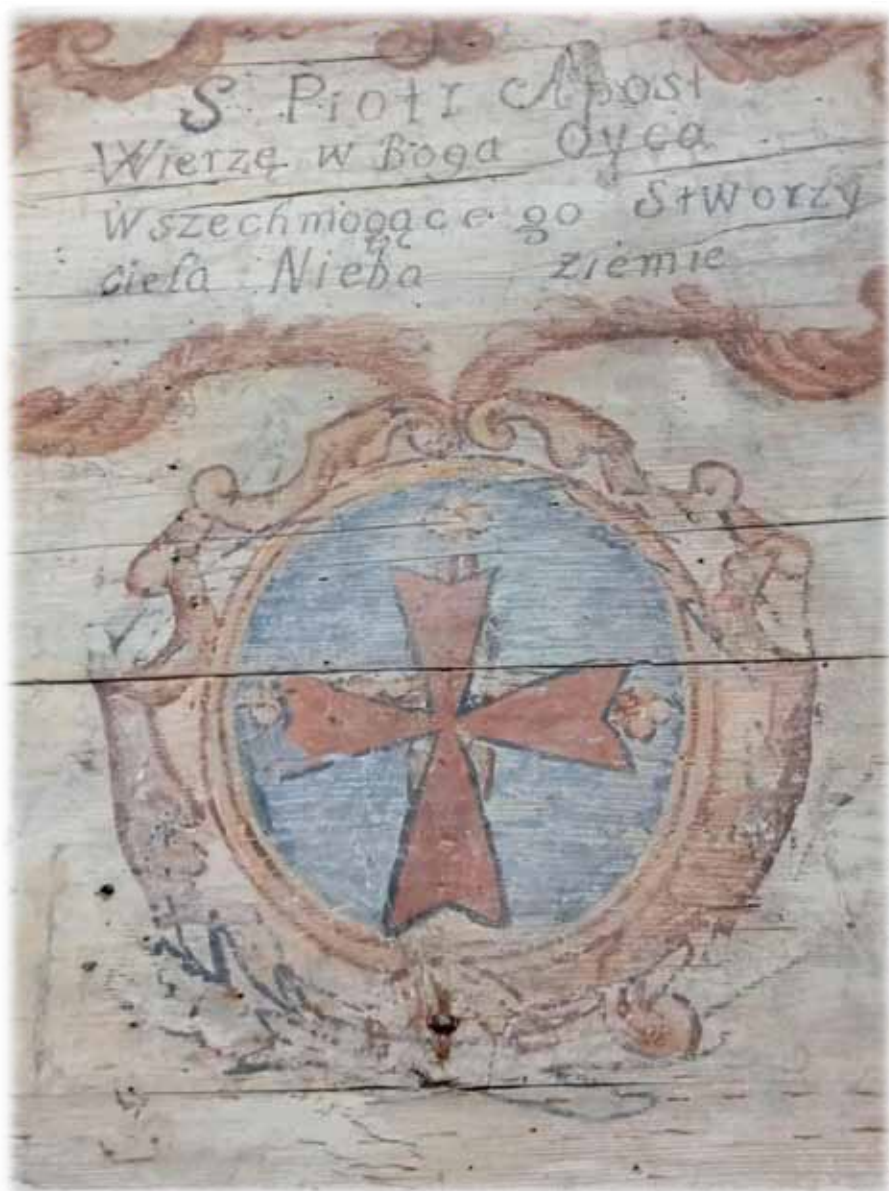 S Piotr Apost
Wierzę w Boga Oyca
Wszechmogące go Stworzy
ciela Nieba ziemie